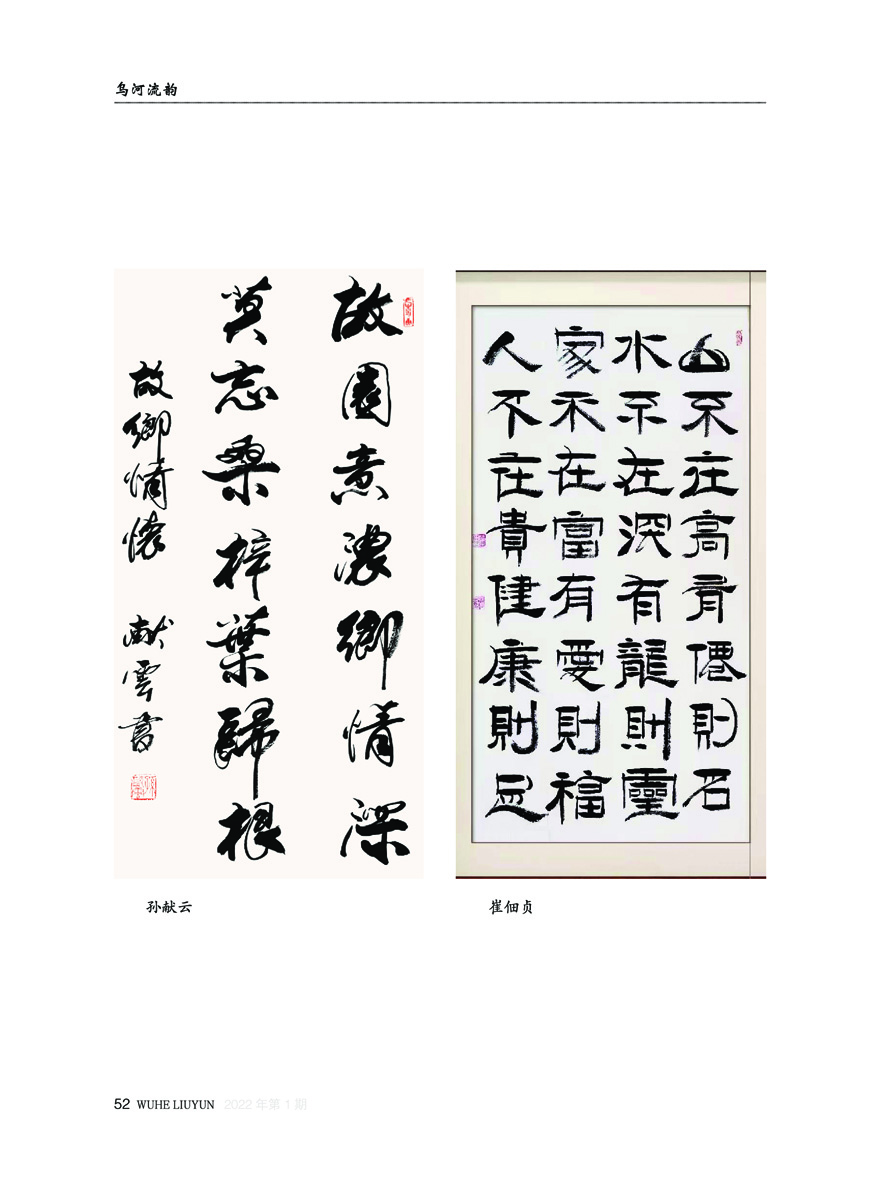 乌河流韵
故園意濃鄉情深
莫忘桑梓葉歸根
故鄉情懷 献雲書
山不在高有僊則名
水不在深有龍則靈
家不在富有愛則福
人不在貴健康則足
孙献云
崔佃贞
52 WUHE LIUYUN 2022 年第 1 期